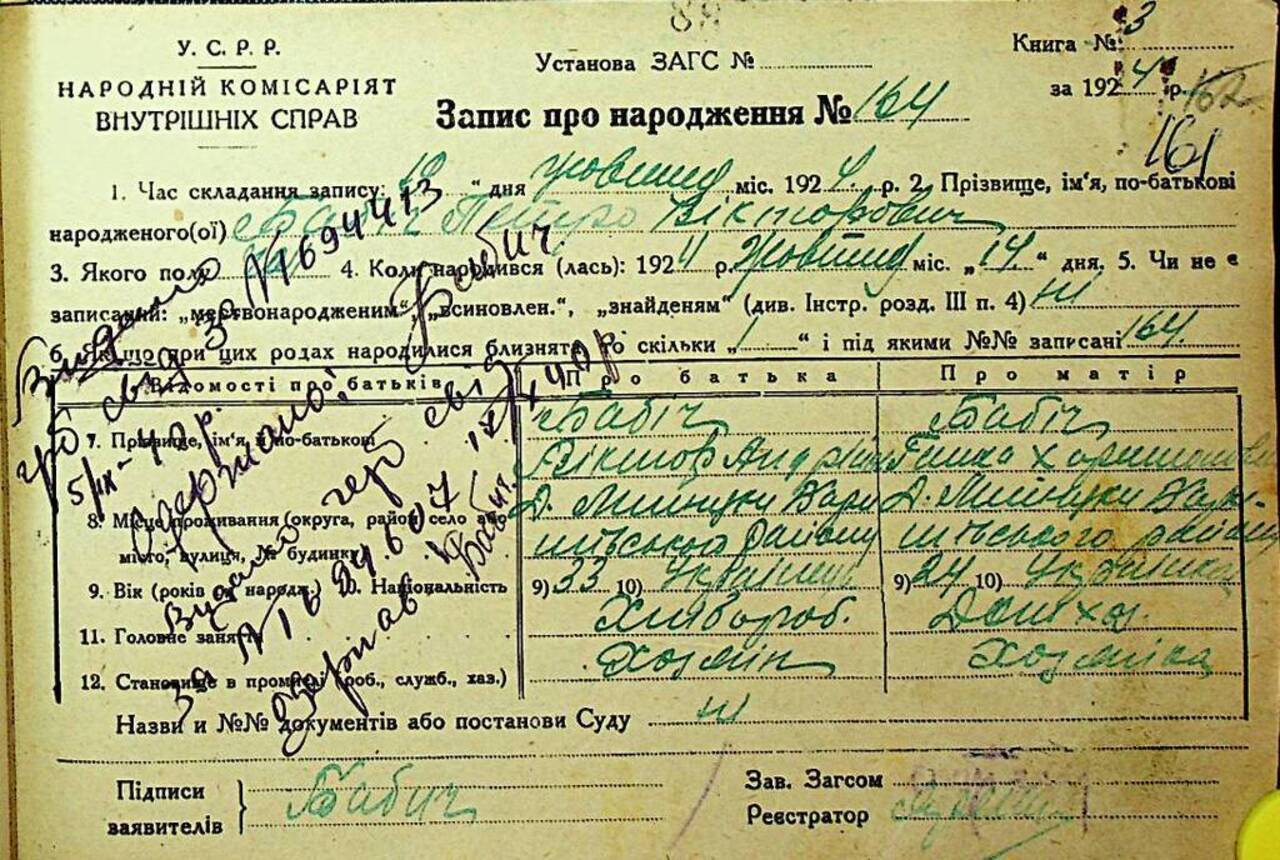 У. С. Р. Р.
НАРОДНІЙ КОМІСАРІЯТ
ВНУТРІШНІХ СПРАВ
Установа ЗАГС №
Книга № 3
за 1924 р.
162
161
Запис про народження № 164
1. Час складання запису: „ “ дня жовтня міс. 1924 р. 2. Прізвище, ім'я, по-батькові
народженого(ої) Бабіч Петро Вікторович
3. Якого полу 4. Коли народився (лась): 1924 р. жовтня міс. „14“ дня. 5. Чи не є
записаний: „мертвонародженим“, „всиновлен.“, „знайденям“ (див. Інстр. розд. III п. 4) ні
6. Якщо при цих родах народилися близнята, то скільки „1“ і під якими №№ записані 164.
Відомості про батьків Про батька Про матір
7. Прізвище, ім'я, й по-батькові Бабіч Бабіч
Віктор Ганка
8. Місце проживання (округа, район, село або
місто, вулиця, № будинку) району району
9. Вік (років од народж.) 10. Національність 9) 33 10) Українец 9) 24 10) Українка
11. Головне заняття Хлібороб. Дом хоз.
12. Становище в промислі (роб., служб., хаз.) Хозяін Хозяіка
Назви и №№ документів або постанови Суду ні
Підписи
заявителів Бабич
Зав. Загсом
Реєстратор
Видано
свід за № 1694413
5/IX-40 р.
Бабич
Видано герб свід
за № 17/X 40 р
одержав Бабич